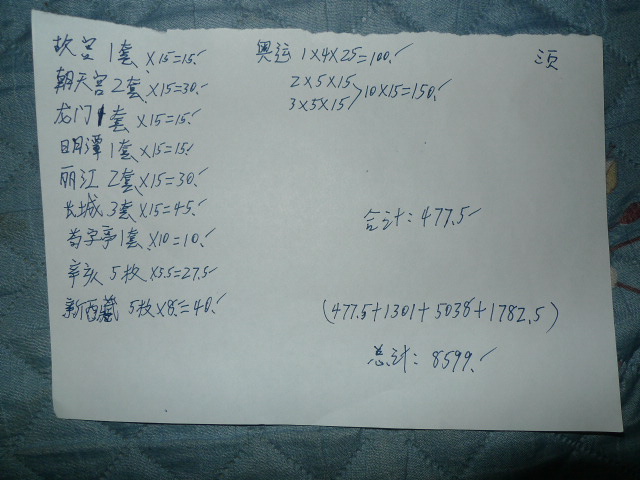 故宫 1套 ×15=15.✓
朝天宫 2套 ×15=30.✓
龙门 1套 ×15=15.✓
日月潭 1套 ×15=15.✓
丽江 2套 ×15=30.✓
长城 3套 ×15=45.✓
1套 ×10=10.✓
辛亥 5枚 ×5.5=27.5
新西藏 5枚×8.=40.✓
奥运 1×4×25=100.✓
2×5×15
3×5×15 >10×15=150.✓
合计:477.5✓
(477.5+1301+5038+1782.5)
总计:8599.✓